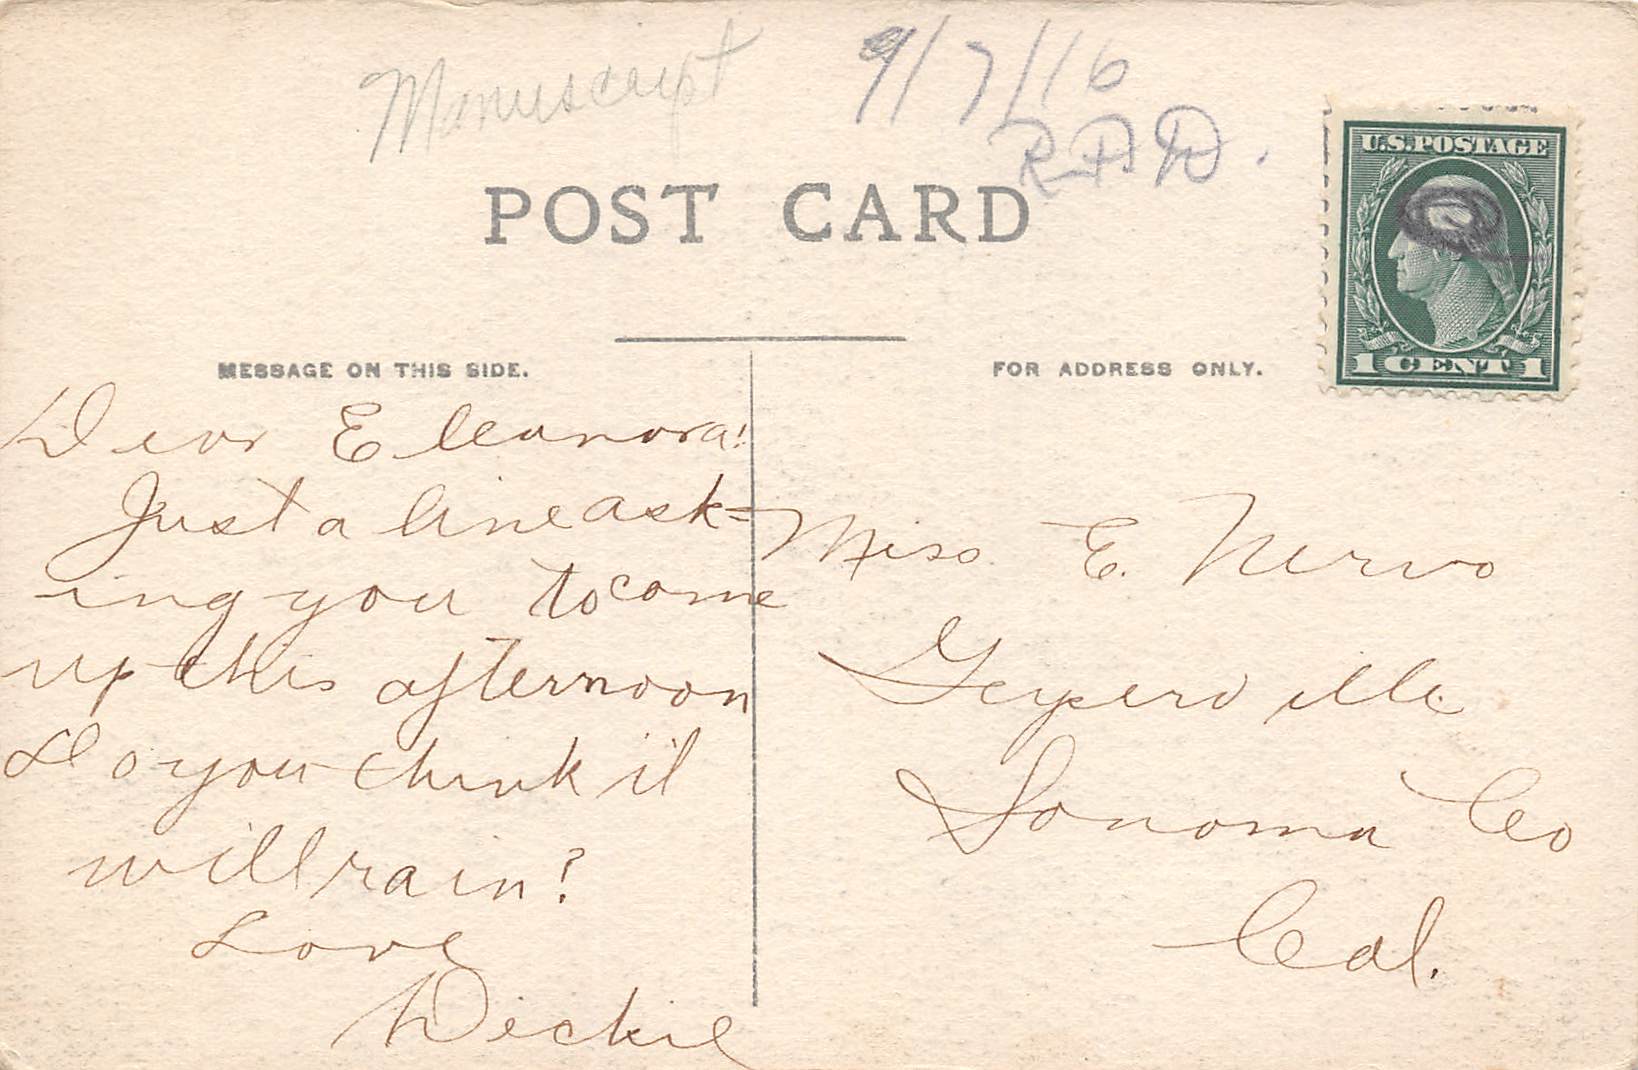 Manuscript
9/7/16
R.F.D.
POST CARD
U.S. POSTAGE
1 CENT 1
MESSAGE ON THIS SIDE.
FOR ADDRESS ONLY.
Dear Eleanora!
Just a line ask=
ing you to come
up this afternoon
Do you think it
will rain?
Love
Dickie
Miss E. Nervo
Geyserville
Sonoma Co
Cal.